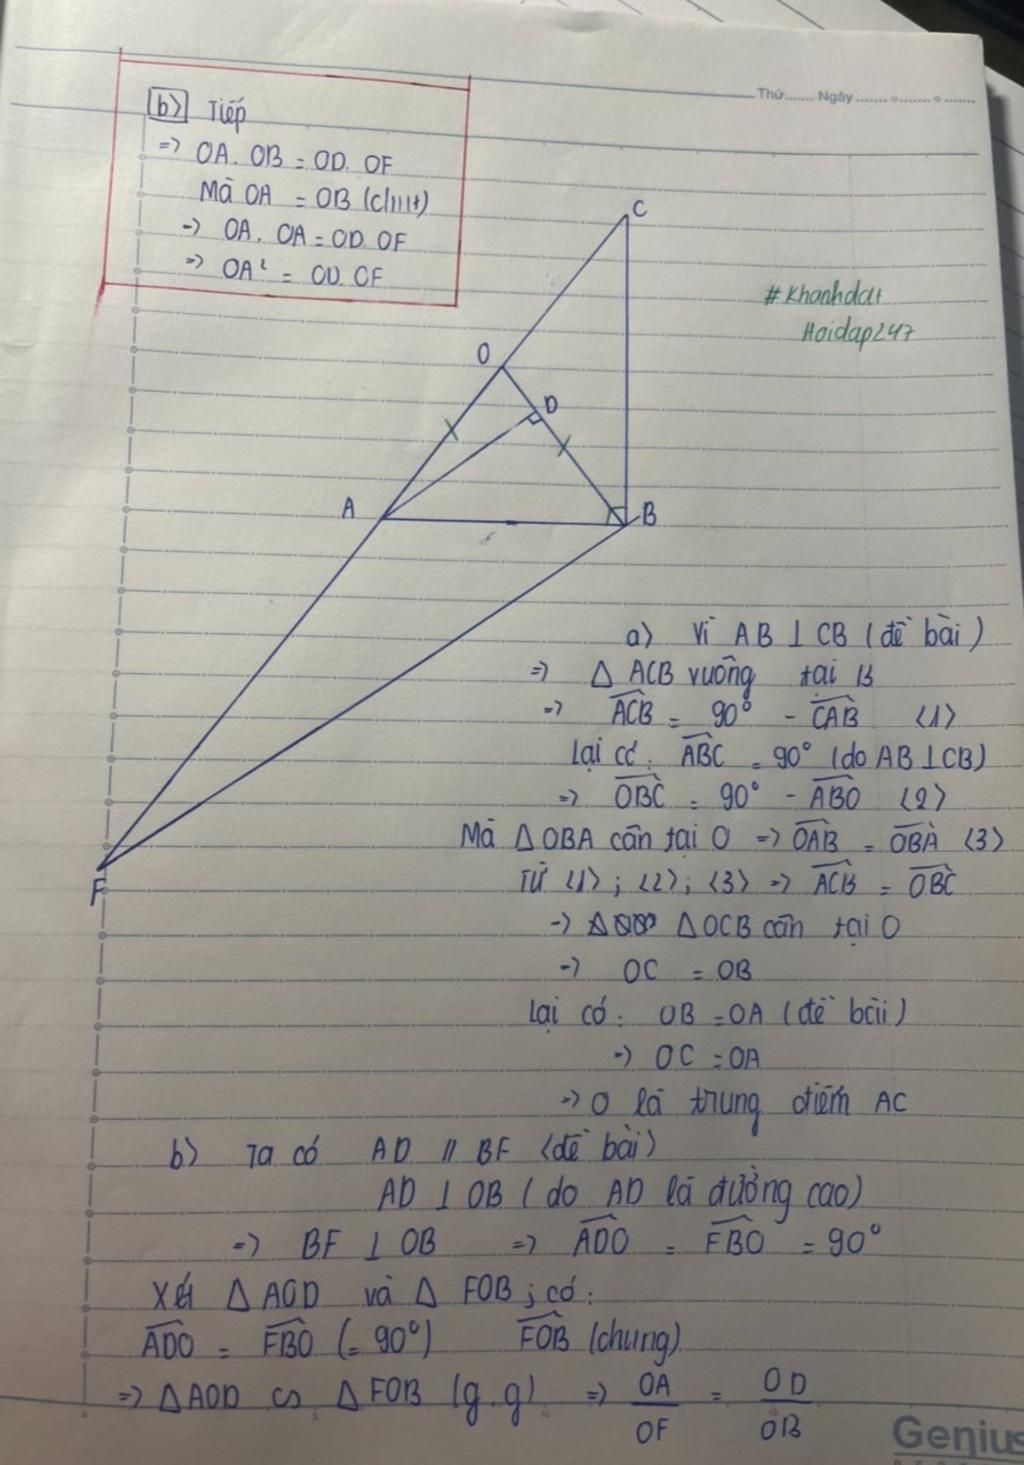 Thứ....... Ngày.......
b) Tiếp
=> OA. OB = OD. OF
Mà OA = OB (cmt)
-> OA. OA = OD. OF
=> OA² = OD. OF
C
#Khanhddt
Hoidap247
O
D
A
B
F
a) Vì AB ⊥ CB (đề bài)
=> Δ ACB vuông tại B
=> ACB = 90° - CAB <1>
Lại có: ABC = 90° (do AB ⊥ CB)
=> OBC = 90° - ABO <2>
Mà Δ OBA cân tại O => OAB = OBA <3>
Từ <1>; <2>; <3> => ACB = OBC
-> Δ OCB cân tại O
-> OC = OB
Lại có: OB = OA (đề bài)
-> OC = OA
=> O là trung điểm AC
b) Ta có AD // BF (đề bài)
AD ⊥ OB (do AD là đường cao)
=> BF ⊥ OB => ADO = FBO = 90°
Xét Δ AOD và Δ FOB; có:
ADO = FBO (= 90°) FOB (chung)
=> Δ AOD ∽ Δ FOB (g.g) => OA/OF = OD/OB
Genius